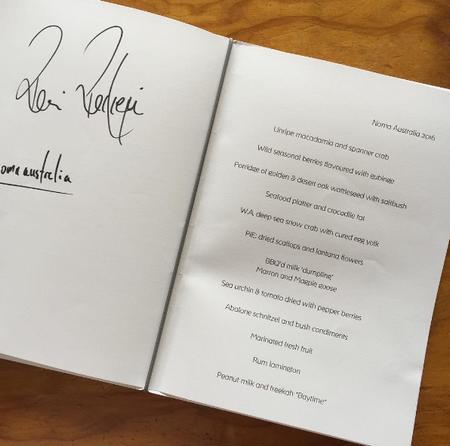 René Redzepi
omaaustralia
Noma Australia 2016
Unripe macadamia and spanner crab
Wild seasonal berries flavoured with gubinge
Porridge of golden & desert oak wattleseed with saltbush
Seafood platter and crocodile fat
W.A. deep sea snow crab with cured egg yolk
PIE: dried scallops and lantana flowers
BBQ'd milk 'dumpling'
Marron and Magpie goose
Sea urchin & tomato dried with pepper berries
Abalone schnitzel and bush condiments
Marinated fresh fruit
Rum lamington
Peanut milk and freekah "Baytime"